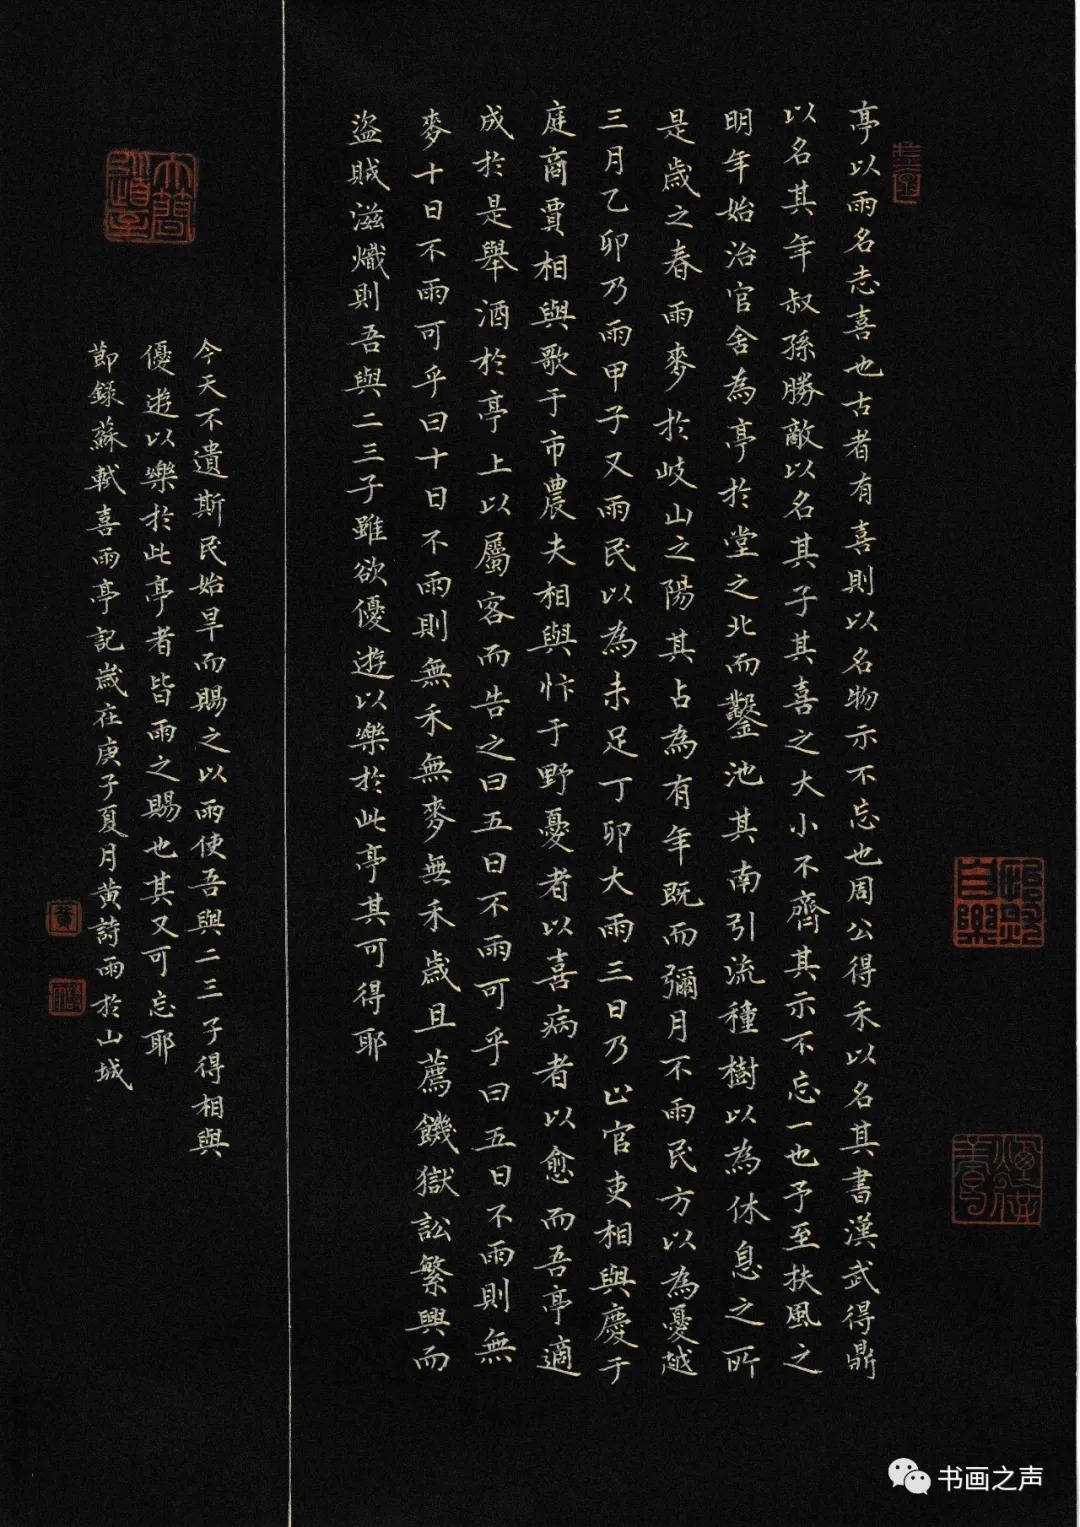 亭以雨名志喜也古者有喜則以名物示不忘也周公得禾以名其書漢武得鼎
以名其年叔孫勝敵以名其子其喜之大小不齊其示不忘一也予至扶風之
明年始治官舍為亭於堂之北而鑿池其南引流種樹以為休息之所
是歲之春雨麥於岐山之陽其占為有年既而彌月不雨民方以為憂越
三月乙卯乃雨甲子又雨民以為未足丁卯大雨三日乃止官吏相與慶于
庭商賈相與歌于市農夫相與忭于野憂者以喜病者以愈而吾亭適
成於是舉酒於亭上以屬客而告之曰五日不雨可乎曰五日不雨則無
麥十日不雨可乎曰十日不雨則無禾無麥無禾歲且薦饑獄訟繁興而
盜賊滋熾則吾與二三子雖欲優遊以樂於此亭其可得耶
今天不遺斯民始旱而賜之以雨使吾與二三子得相與
優遊以樂於此亭者皆雨之賜也其又可忘耶
節錄蘇軾喜雨亭記歲在庚子夏月黃詩雨於山城
书画之声